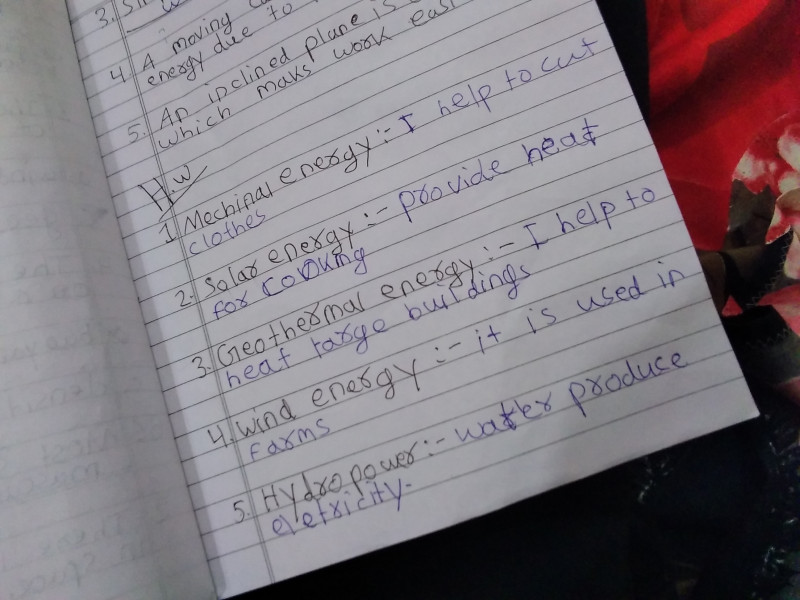 3.
4. A moving
energy due to
5. An inclined plane is
which maks work easi
H.W
1. Mechinal energy:- I help to cut
clothes
2. Solar energy:- provide heat
for cooking
3. Geothermal energy:- I help to
heat large buildings
4. wind energy:- it is used in
farms
5. Hydropower:- water produce
eletricity.